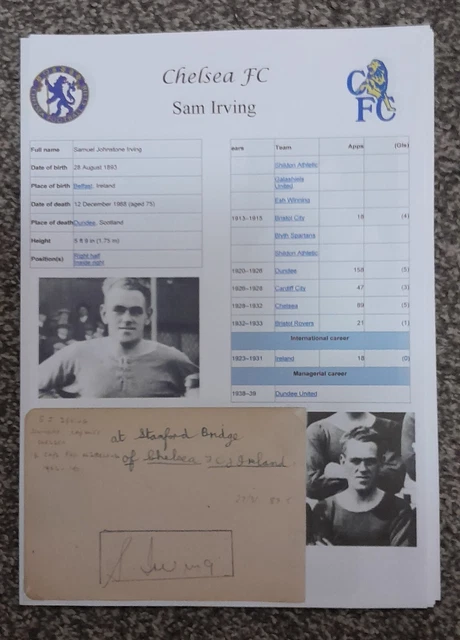 Chelsea FC
Sam Irving
Full name Samuel Johnstone Irving
Date of birth 28 August 1893
Place of birth Belfast, Ireland
Date of death 12 December 1968 (aged 75)
Place of death Dundee, Scotland
Height 5 ft 9 in (1.75 m)
Position(s) Right half
Inside right
ears Team Apps (Gls)
Shildon Athletic
Galashiels
United
Esh Winning
1913–1915 Bristol City 18 (4)
Blyth Spartans
Shildon Athletic
1920–1926 Dundee 158 (5)
1926–1928 Cardiff City 47 (3)
1928–1932 Chelsea 89 (5)
1932–1933 Bristol Rovers 21 (1)
International career
1923–1931 Ireland 18 (0)
Managerial career
1938–39 Dundee United
CHELSEA
at Stamford Bridge
of Chelsea F.C. & Ireland
S Irving
C
FC